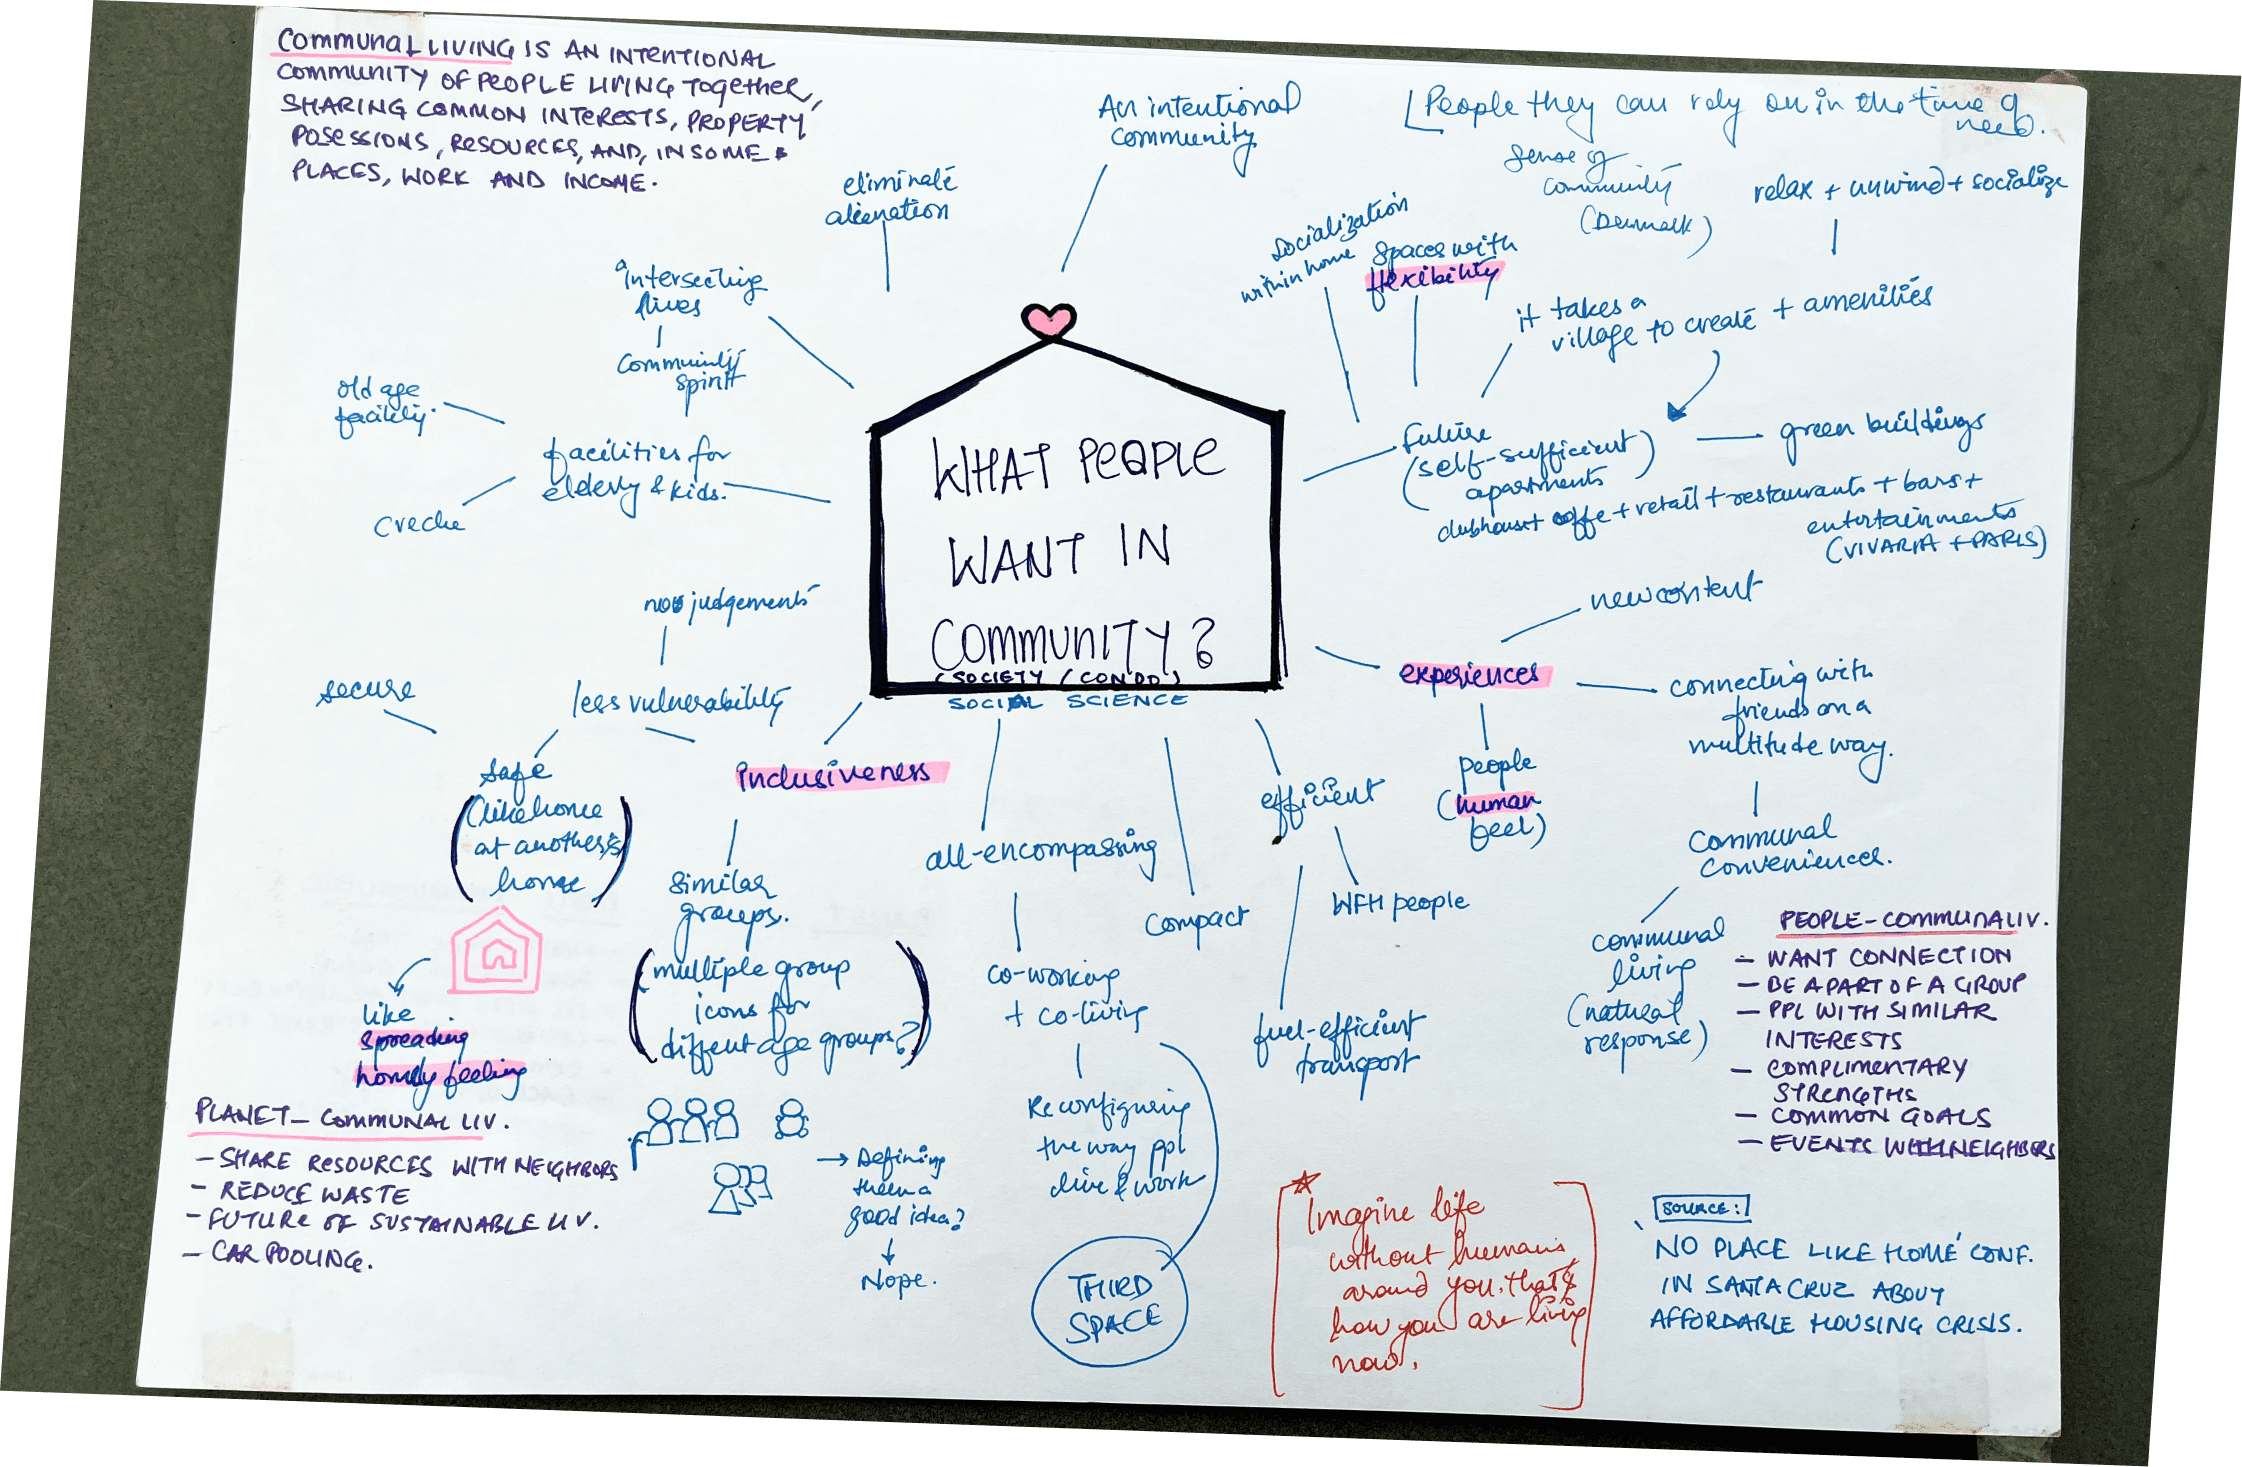 COMMUNAL LIVING IS AN INTENTIONAL
COMMUNITY OF PEOPLE LIVING TOGETHER,
SHARING COMMON INTERESTS, PROPERTY
POSESSIONS, RESOURCES, AND, IN SOME
PLACES, WORK AND INCOME.
eliminate
alienation
An intentional
community
People they can rely on in the time of
need.
sense of
community
(Denmark)
relax + unwind + socialize
socialization
within home
spaces with
flexibility
it takes a
village to create + amenities
intersecting
lives
Community
spirit
old age
facility.
facilities for
elderly & kids.
creche
WHAT PEOPLE
WANT IN
COMMUNITY?
(SOCIETY / CONDO)
SOCIAL SCIENCE
future
(self-sufficient)
apartments
green buildings
clubhouse + coffe + retail + restaurants + bars +
entertainments
(VIVARIA + PARIS)
no judgements
secure
less vulnerability
safe
(like home
at another's
home)
like
spreading
homely feeling
inclusiveness
similar
groups.
(multiple group
icons for
diffent age groups?)
→ Defining
them a
good idea?
Nope.
all-encompassing
co-working
+ co-living
Reconfiguring
the way ppl
live & work
THIRD
SPACE
compact
efficient
WFH people
fuel-efficient
transport
experiences
new content
people
(human
feel)
connecting with
friends on a
multitude way.
communal
conveniences.
communal
living
(natural
response)
PEOPLE - COMMUNALIV.
- WANT CONNECTION
- BE A PART OF A GROUP
- PPL WITH SIMILAR
INTERESTS
- COMPLIMENTARY
STRENGTHS
- COMMON GOALS
- EVENTS WITH NEIGHBERS
PLANET - COMMUNAL LIV.
- SHARE RESOURCES WITH NEIGHBORS
- REDUCE WASTE
- FUTURE OF SUSTAINABLE LIV.
- CAR POOLING.
Imagine life
without humans
around you, that's
how you are living
now.
SOURCE:
NO PLACE LIKE HOME' CONF.
IN SANTA CRUZ ABOUT
AFFORDABLE HOUSING CRISIS.